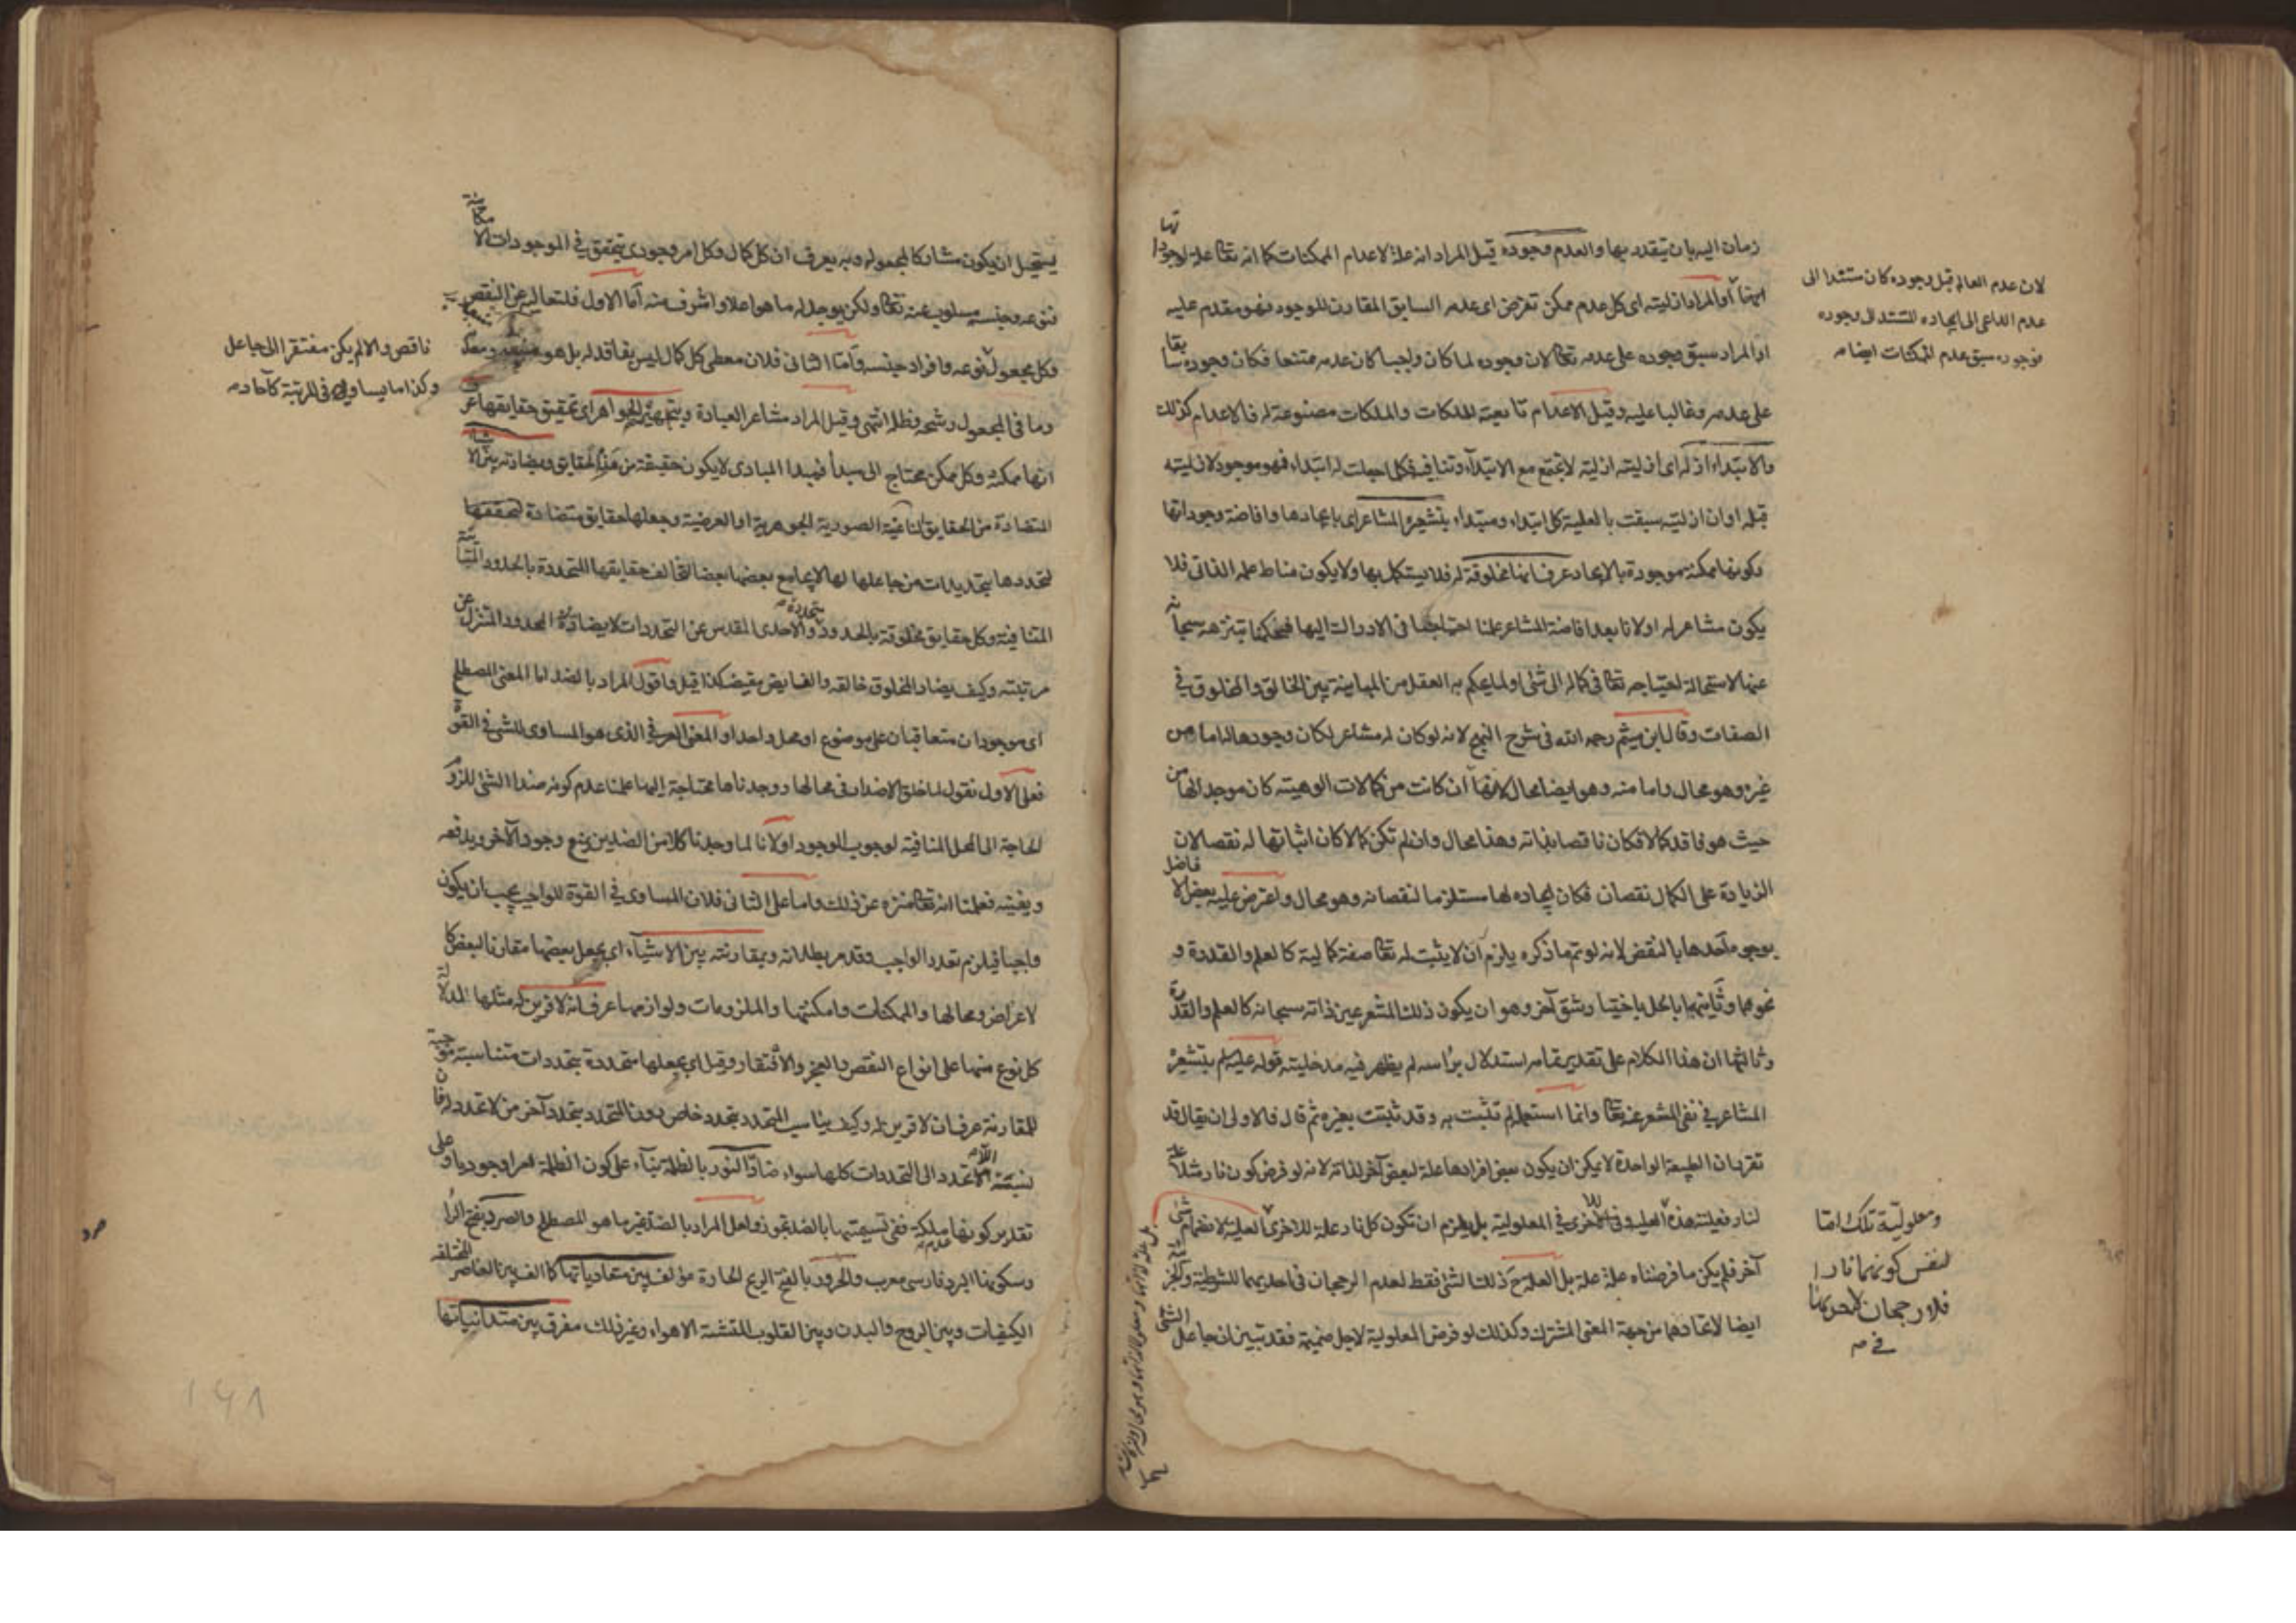 زمان اليه بان يتقدر بها والعدم وجوده قيل المراد انه علة لاعدام الممكنات كما انه تعا علة لوجوداتها
ايضا أو المراد ازليته اى كل عدم ممكن تفرض اى عدمه السابق المقارن للوجود فهو مقدم عليه
او المراد سبق وجوده على عدمه تعا لان وجوده لما كان واجبا كان عدمه ممتنعا فكان وجوده سابقا
على عدمه وغالبا عليه وقيل الاعدام تابعة للملكات والملكات مصنوعة له فالاعدام كذلك
والابتداء ازله اى ازليته ازلية لا تجتمع مع الابتداء وتنافيه فكلما جعلت له ابتداء فهو موجود لازليته
قبله او ان ازليته سبقت بالعلية كل ابتداء ومبتداء بتشعيره المشاعر اى بايجادها وافاضة وجوداتها
وكونها ممكنة موجودة بالايجاد عرف انها مخلوقة له فلا يستكمل بها ولا يكون مناط علمه الذاتى فلا
يكون مشاعر له او لانا بعد افاضة المشاعر علمنا احتياجنا فى الادراك اليها فحكمنا بتنزهه سبحانه
عنها لاستحالة احتياجه تعا فى كماله الى شئ او لما يحكم به العقل من المباينة بين الخالق والمخلوق في
الصفات وقال ابن ميثم رحمه الله فى شرح النهج لانه لو كان له مشاعر لكان وجودها له اما من
غيره وهو محال واما منه وهو ايضا محال لانها ان كانت من كمالات الوهيته كان موجدا لها من
حيث هو فاقد كمالا فكان ناقصا بذاته وهذا محال وان لم تكن كمالا كان اثباتها له نقصا لان
الزيادة على الكمال نقصان فكان ايجاده لها مستلزما لنقصانه وهو محال واعترض عليه بعض الافاضل
بوجوه أحدها بالنقض لانه لو تم ما ذكره يلزم أن لا يثبت له تعا صفة كمالية كالعلم والقدرة و
نحوهما وثانيها بالحل باختيار شق آخر وهو ان يكون ذلك المشعر عين ذاته سبحانه كالعلم والقدرة
وثالثها ان هذا الكلام على تقدير تمامه استدلال براسه لم يظهر فيه مدخلية قوله عليه لم بتشعيره
المشاعر في نفى المشعر عنه تعا وانما استعمله لم تثبت به وقد ثبتت بغيره ثم قال فالاولى ان يقال قد
تقرر ان الطبيعة الواحدة لا يمكن ان يكون بعض افرادها علة لبعض آخر لذاته لانه لو فرض كون نار مثلا علة
لنار فعلية هذه العلية وفى تلك الاخرى في المعلولية بل يلزم ان تكون كل نار علة للاخرى العلية لانضمام شئ
آخر فلم يكن ما فرضناه علة علة بل العلة ح ذلك الشئ فقط لعدم الرجحان فى احديهما للشرطية والجزئية
ايضا لاتحادهما من جهة المعنى المشترك وكذلك لو فرض المعلولية لاجل ضميمة فقد تبين ان جاعل الشئ
لان عدم العالم قبل وجوده كان مستندا الى
عدم الداعى الى ايجاده المستند الى وجوده
فوجوده سبق عدم الممكنات ايضا م
ومعلولية تلك اما
لنفس كونهما نارا
فلا رجحان لاحديهما
في م
يستحيل ان يكون مشاركا لمجعوله وبه يعرف ان كل كمال وكل امر وجودى يتحقق في الموجودات الامكانية
فنوعه وجنسه مسلوب عنه تعا ولكن يوجد له ما هو اعلا واشرف منه أما الاول فلتعاليه عن النقص
وكل مجعول نوعه وافراد جنسه وأما الثانى فلان معطى كل كمال ليس بفاقد له بل هو منبعه ومعدنه
وما فى المجعول رشحه وظله انتهى وقيل المراد مشاعر العبادة وبتجهيره الجواهر اى تحقيق حقايقها عرف
انها ممكنة وكل ممكن محتاج الى مبدأ فمبدا المبادى لا يكون حقيقة من هذه الحقايق ومضادته بين الاشياء
المتضادة من الحقايق النوعية الصورية الجوهرية او العرضية وجعلها حقايق متضادة لتحققها
لتحددها بتحديدات من جاعلها لها لا يجامع بعضها بعضا لتخالف حقايقها المتحددة بالحدود المتباينة
المتنافية وكل حقايق مخلوقة بالحدود متحددة م والاحدى المقدس عن التحددات لا يضاده المحدود المتنزل عن
مرتبته وكيف يضاد المخلوق خالقه والفايض مفيضه كذا قيل واقول المراد بالضد اما المعنى المصطلح
اى موجودان متعاقبان على موضوع او محل واحد او المعنى العرفي الذى هو المساوى للشئ في القوة
فعلى الاول نقول لما خلق الاضداد فى محالها ووجدناها محتاجة اليها علمنا عدم كونه ضدا لشئ للزوم
الحاجة الى المحل المنافية لوجوب الوجود او لانا لما وجدنا كلا من الضدين يمنع وجود الآخر ويدفعه
ويفنيه فعلمنا انه تعا منزه عن ذلك واما على الثانى فلان المساوى في القوة للواجب يجب ان يكون
واجبا فيلزم تعدد الواجب وقد مر بطلانه وبمقارنته بين الاشياء اى بجعل بعضها مقارنا لبعض كا
لاعراض ومحالها والممكنات وامكنتها والملزومات ولوازمها عرف انه لا قرين له مثلها لدلالة
كل نوع منها على انواع النقص والعجز والافتقار وقيل اى بجعلها متحددة بتحددات متناسبة موجبة
للمقارنة عرف ان لا قرين له وكيف يناسب المتحدد بتحدد خاص دون المتحدد بتحدد آخر من لا تحدد له فان
نسبة اللا تحدد الى التحددات كلها سواء ضاد النور بالظلمة بناء على كون الظلمة امرا وجوديا وعلى
تقدير كونها عدم ملكة ففى تسميتها بالضد تجوز ولعل المراد بالضد غير ما هو المصطلح والصرد بفتح الراء
وسكونها البرد فارسى معرب والحرور بالفتح الريح الحارة مؤلف بين متعادياتها كما الف بين العناصر المختلفة
الكيفيات وبين الروح والبدن وبين القلوب المتشتتة الاهواء وغير ذلك مفرق بين متدانياتها
ناقص والا لم يكن مفتقرا الى جاعل
وكذا ما يساويه فى المرتبة كآحاد م
١٤٨